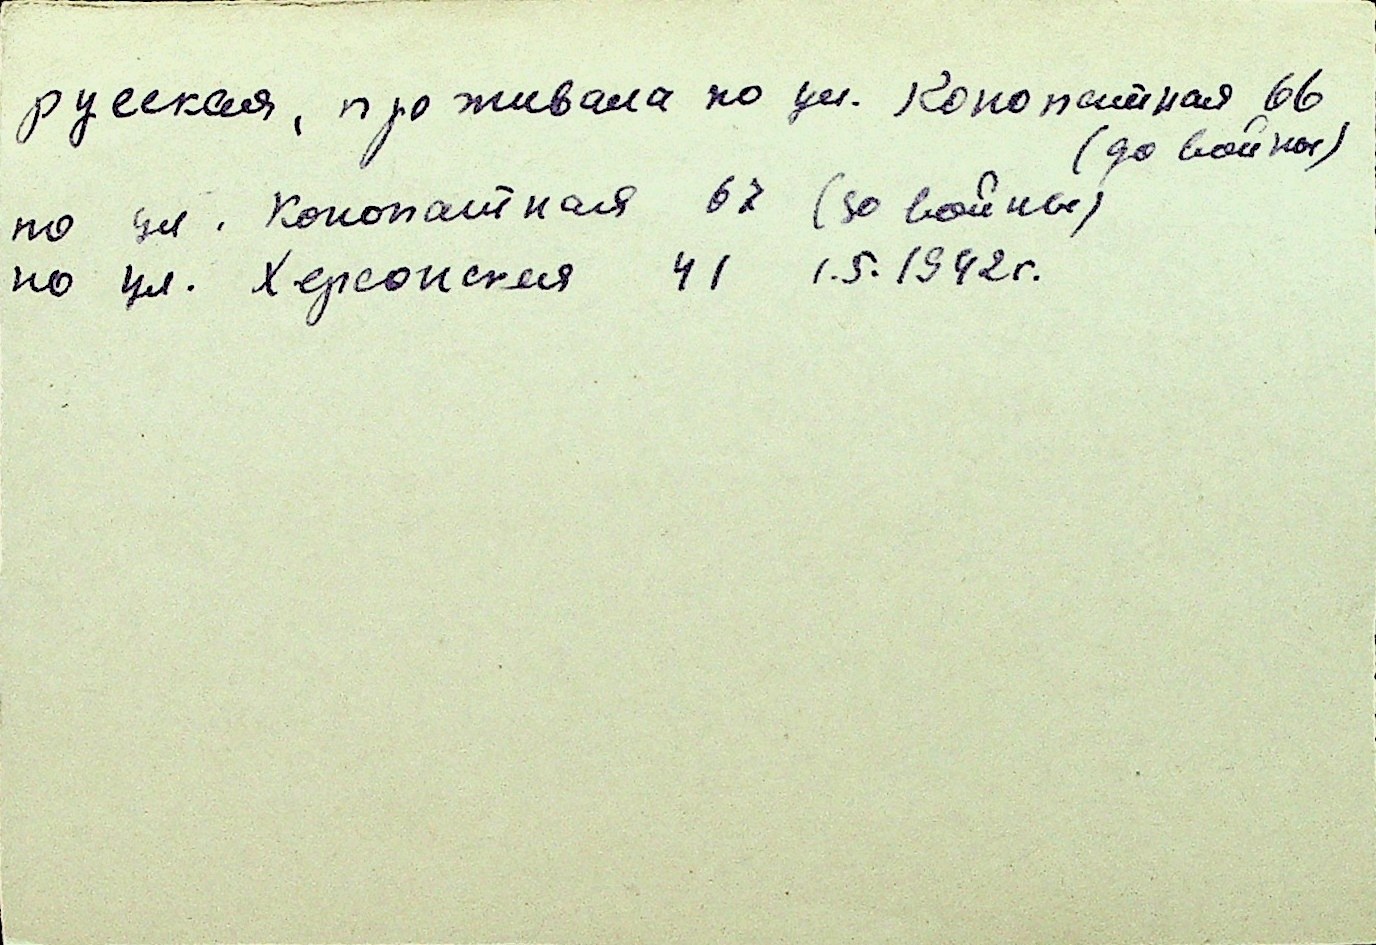 русская, проживала по ул. Конопатная 66
(до войны)
по ул. Конопатная 67 (до войны)
по ул. Херсонская 41 1.5.1942г.